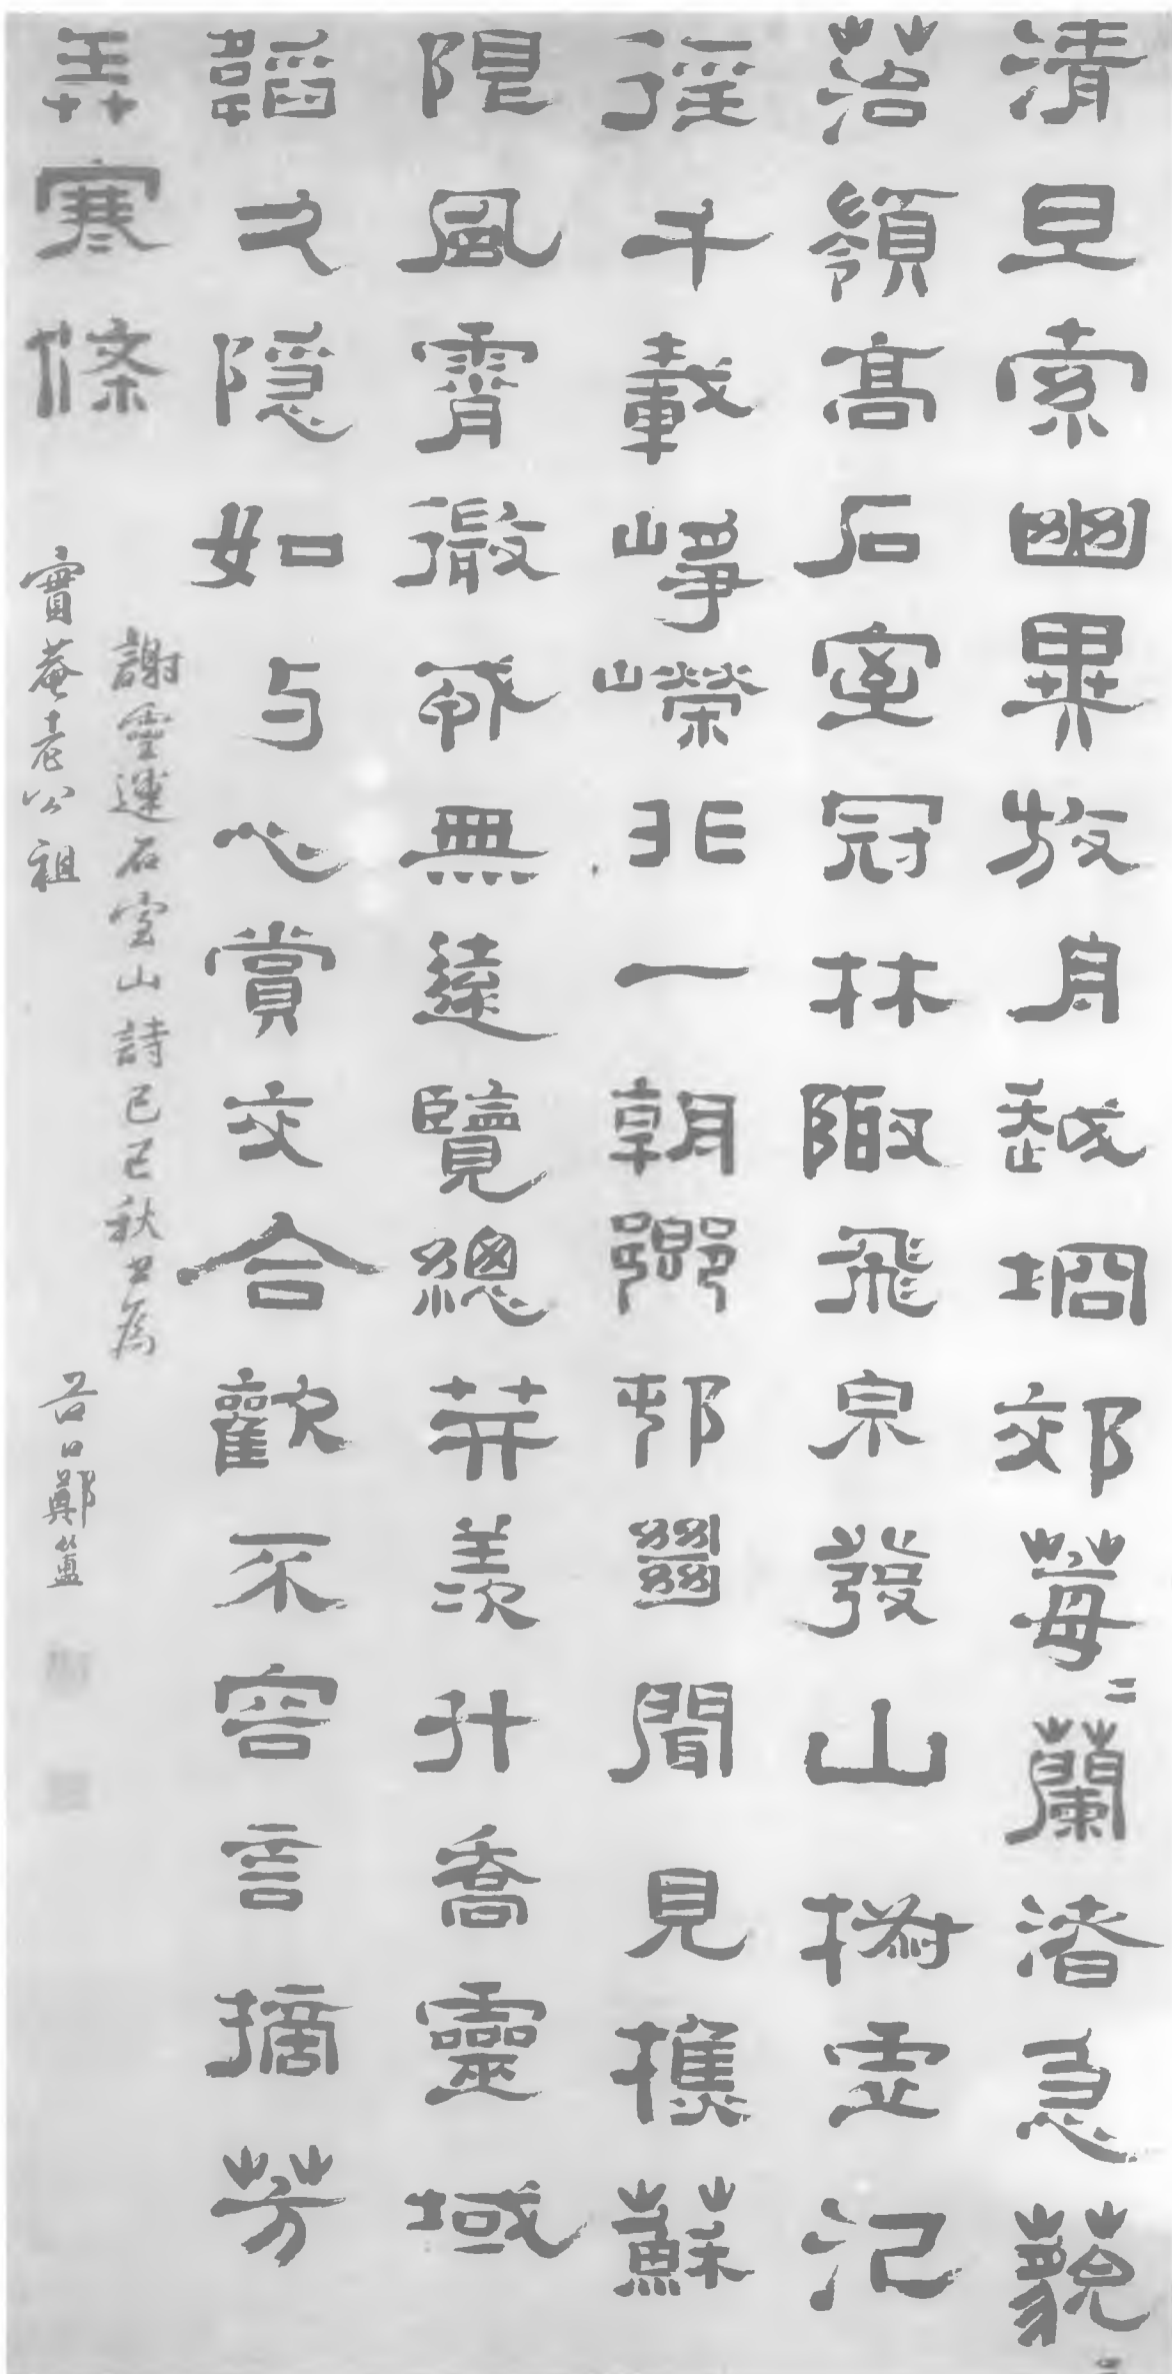 清旦索幽異放舟越坰郊苺二蘭渚急藐二
苔嶺高石室冠林陬飛泉發山椒虛氾
徑千載崢嶸非一朝鄉邨絕聞見樵蘇
限風霄微戎無遠覽總笄羨升喬靈域
韜久隱如与心賞交合歡不容言摘芳
弄寒條
謝靈運石室山詩己巳秋書為
寳菴老公祖
谷口鄭簠